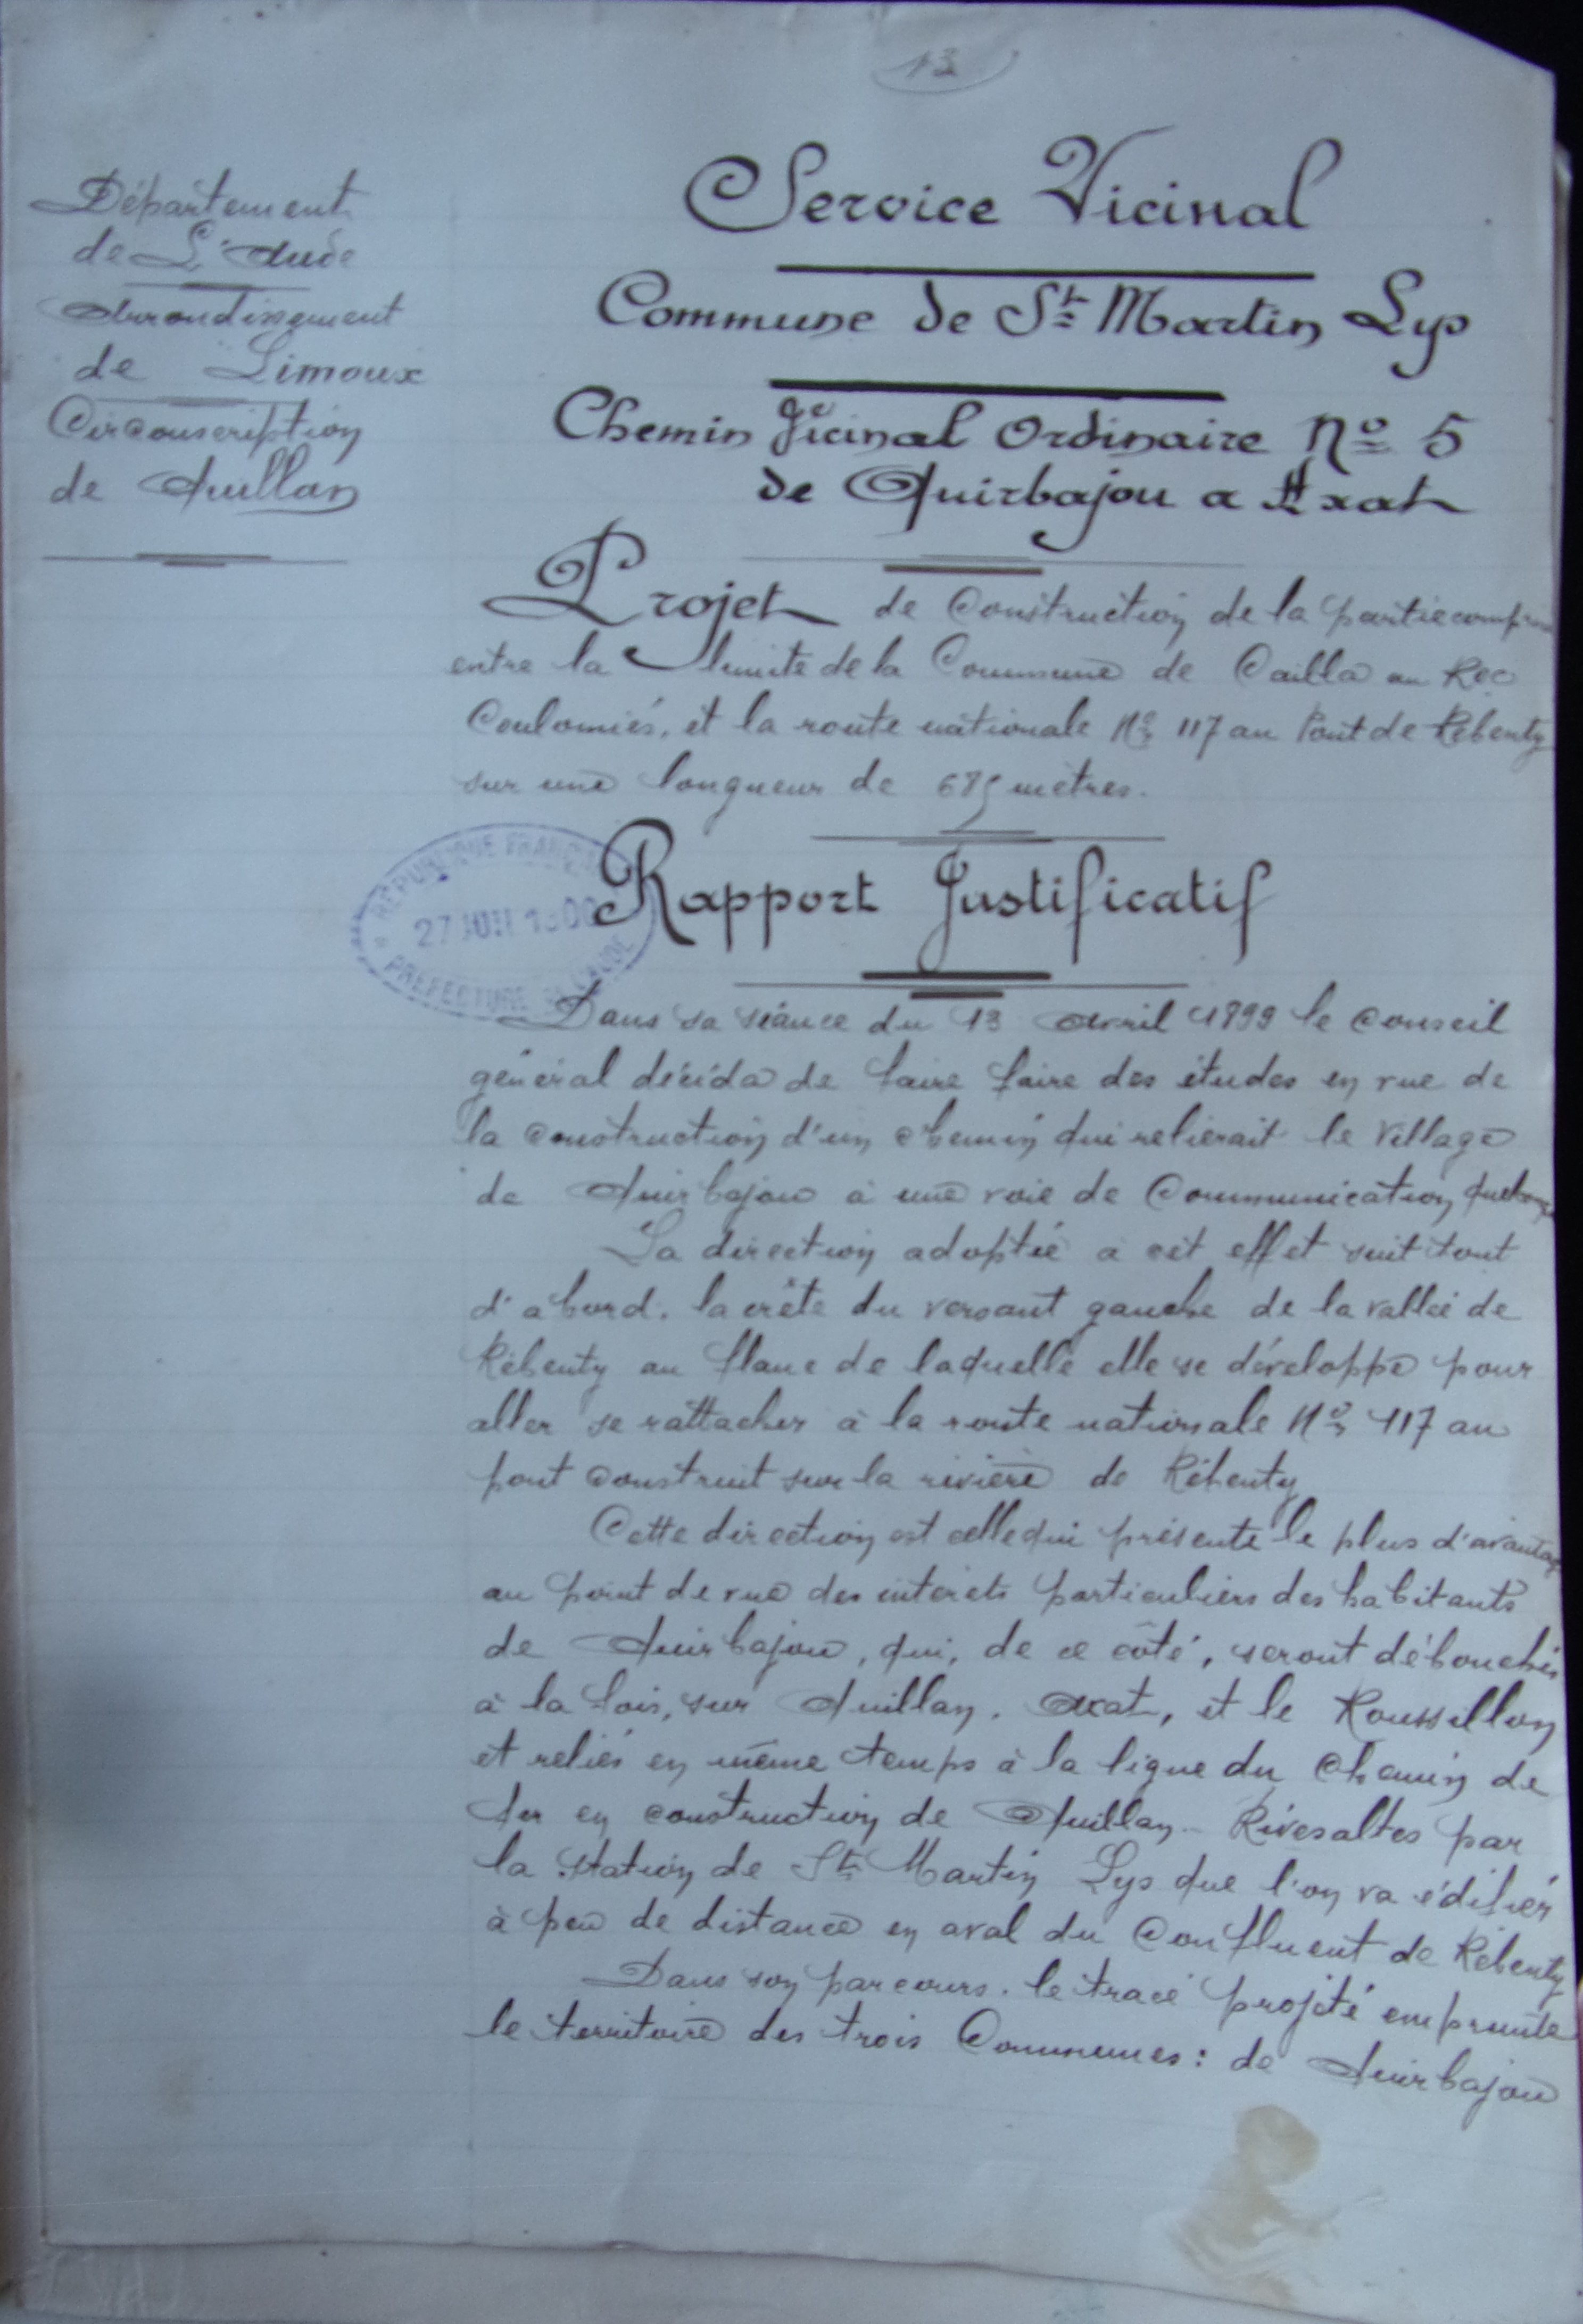 13
Département
de L'Aude
Arrondissement
de Limoux
Circonscription
de Quillan
Service Vicinal
Commune de St Martin Lys
Chemin Vicinal Ordinaire No 5
de Quirbajou a Axat
Projet de Construction de la partie comprise
entre la limite de la Commune de Cailla au Rec
Coulomiés, et la route nationale No 117 au Pont de Rébenty
sur une longueur de 685 mètres.
REPUBLIQUE FRANÇAISE
27 JUIN 1900
PREFECTURE DE L'AUDE
Rapport Justificatif
Dans sa séance du 13 Avril 1899 le Conseil
général décida de faire faire des études en vue de
la Construction d'un chemin qui relierait le Village
de Quirbajou à une voie de Communication quelconque
La direction adoptée à cet effet suit tout
d'abord. la crête du versant gauche de la vallée de
Rébenty au flanc de laquelle elle se développe pour
aller se rattacher à la route nationale No 117 au
pont Construit sur la rivière de Rébenty
Cette direction est celle qui présente le plus d'avantages
au point de vue des intérêts particuliers des habitants
de Quirbajou, qui, de ce côté, seront débouchés
à la fois, sur Quillan, Axat, et le Roussillon
et reliés en même temps à la ligne du Chemin de
fer en construction de Quillan - Rivesaltes par
la station de St Martin Lys que l'on va édifier
à peu de distance en aval du Confluent de Rébenty
Dans son parcours. le tracé projeté emprunte
le territoire des trois Communes : de Quirbajou